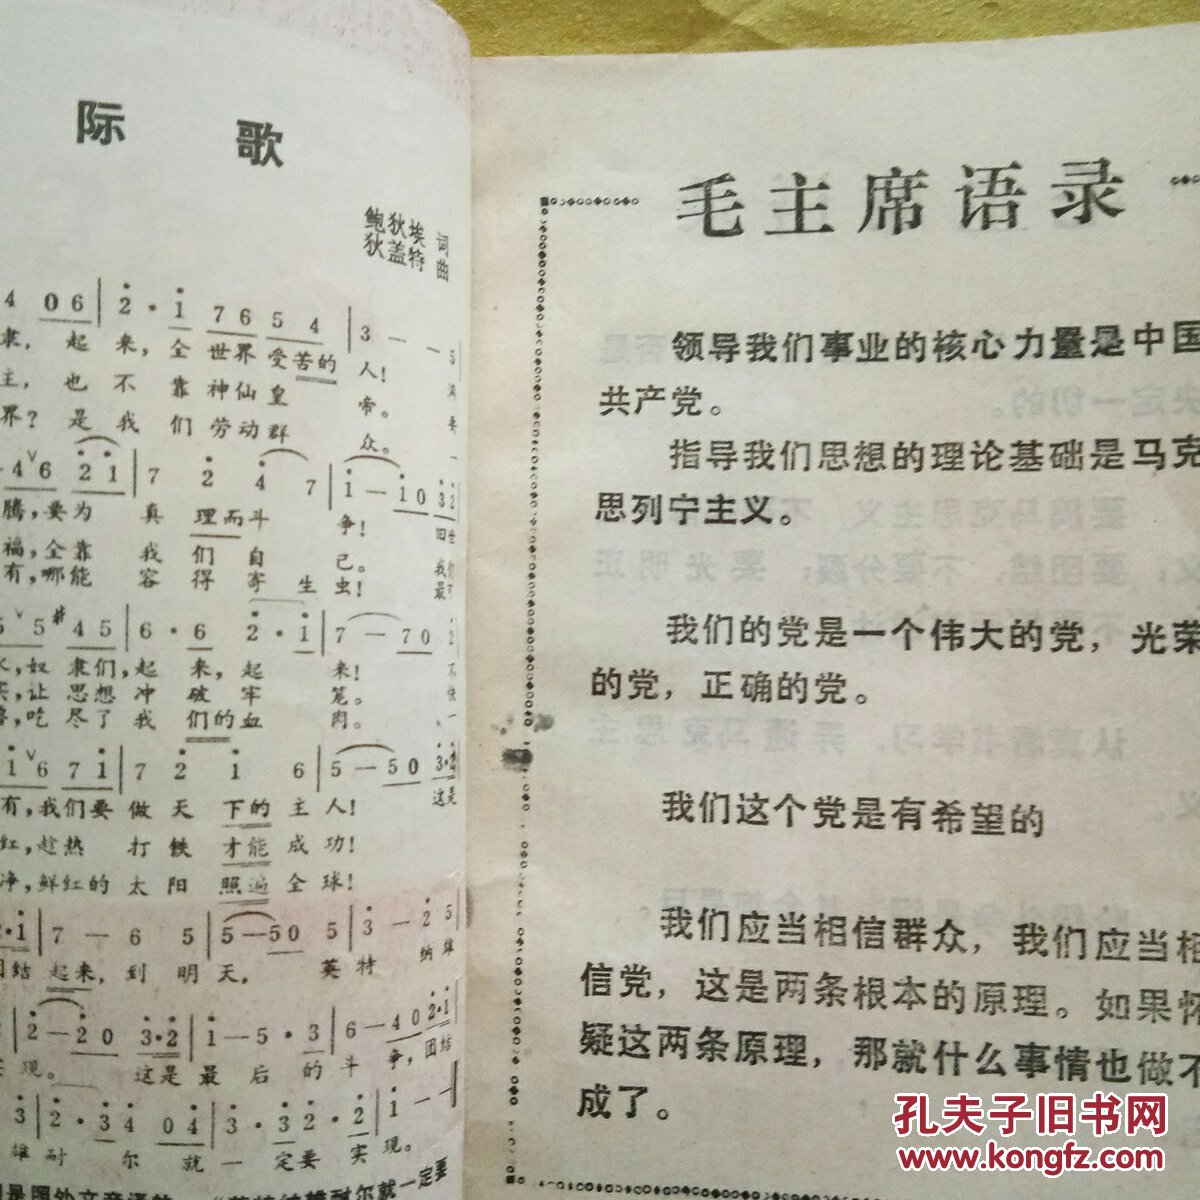 际 歌
鲍狄埃 词
狄盖特 曲
4 0 6 | 2 · 1 7 6 5 4 | 3 — — 5
隶, 起 来, 全 世界 受苦的 人! 满
主, 也 不 靠 神仙 皇 帝。 要
界? 是 我 们 劳动 群 众。 一
4 6 2 1 | 7 2 4 7 | 1 — 1 0 3 2
腾, 要为 真 理而斗 争! 旧世
福, 全靠 我 们 自 己。 我们
有, 哪能 容 得 寄 生 虫! 最可
5 5 4 5 | 6 · 6 2 · 1 | 7 — 7 0 2
奴 隶们, 起 来, 起 来! 不
让 思想 冲 破 牢 笼。 快
吃 尽了 我 们的血 肉。 一
1 6 7 1 | 7 2 1 6 | 5 — 5 0 3·2
有, 我们要 做 天 下的 主 人! 这是
红, 趁热 打 铁 才能 成 功!
净, 鲜红的 太 阳 照遍 全 球!
2·1 | 7 — 6 5 | 5 — 5 0 5 | 3 — 2 5
团结 起来, 到 明 天, 英 特 纳 雄
2 — 2 0 3·2 | 1 — 5 · 3 | 6 — 4 0 2·1
现。 这是 最 后 的 斗 争, 团结
3 | 2 · 3 4 0 4 | 3 · 3 2 · 2 | 1 — —
雄 耐 尔 就 一 定 要 实 现。
是照外文音译的。“英特纳雄耐尔就一定要
毛主席语录
领导我们事业的核心力量是中国
共产党。
指导我们思想的理论基础是马克
思列宁主义。
我们的党是一个伟大的党，光荣
的党，正确的党。
我们这个党是有希望的
我们应当相信群众，我们应当相
信党，这是两条根本的原理。如果怀
疑这两条原理，那就什么事情也做不
成了。
孔夫子旧书网
www.kongfz.com